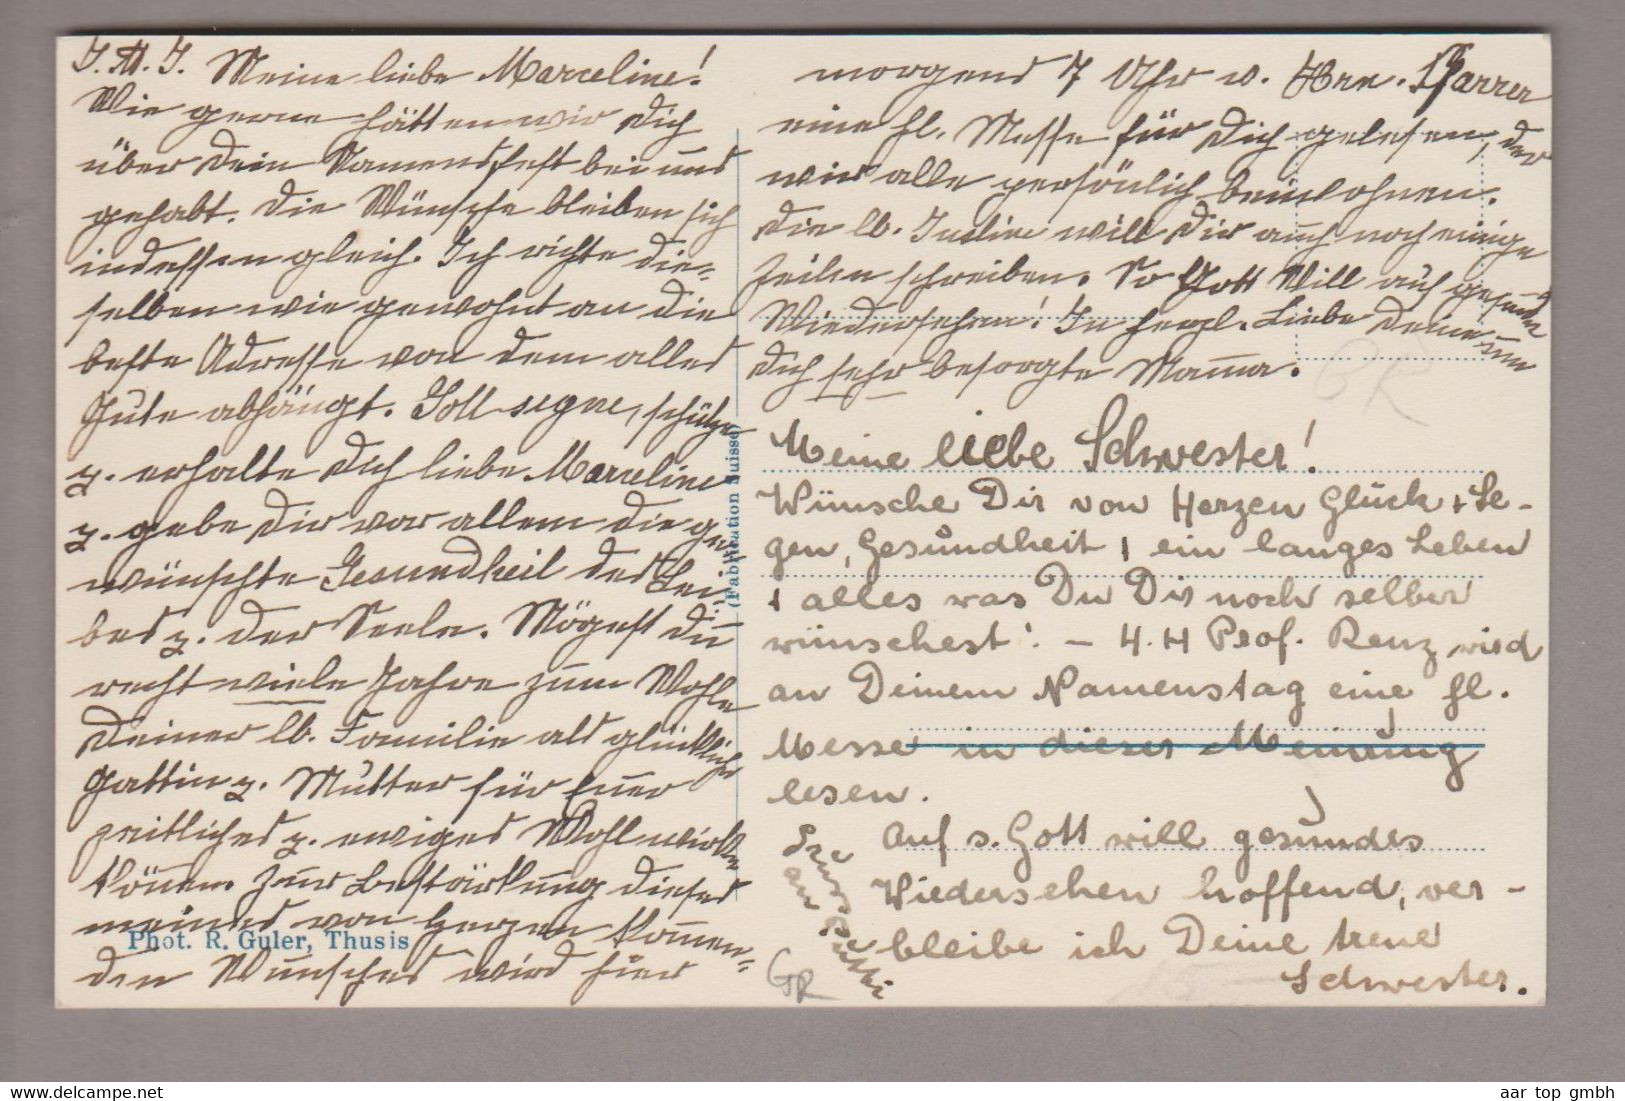 J. M. J. Meine liebe Marceline!
Wie gerne hätten wir Dich
über Dein Namensfest bei uns
gehabt. Die Wünsche bleiben sich
indessen gleich. Ich richte die-
selben wie gewohnt an die
beste Adresse von dem alles
Gute abhängt. Gott segne, schütze
u. erhalte Dich liebe Marceline
u. gebe Dir vor allem die ge-
wünschte Gesundheit des Lei-
bes u. der Seele. Mögest Du
recht viele Jahre zum Wohle
Deiner lb. Familie als glückliche
Gattin u. Mutter für Euer
zeitliches u. ewiges Wohl wirken
können. Zur Bestärkung dieses
meines von Herzen kommen-
den Wunsches wird hier
morgens 7 Uhr v. Hrn. Pfarrer
eine hl. Messe für Dich gelesen, der
wir alle persönlich beiwohnen.
Die lb. will Dir auch noch einige
Zeilen schreiben. So Gott Will auf gesundes
Wiedersehen! In herzl. Liebe Deine um
Dich sehr besorgte Mama.
Meine liebe Schwester!
Wünsche Dir von Herzen Glück + Se-
gen, Gesundheit, ein langes Leben
+ alles was Du Dir noch selber
wünschest! – H. H Prof. Renz wird
an Deinem Namenstag eine hl.
Messe in dieser Meinung
lesen.
Auf s. Gott will gesundes
Wiedersehen hoffend, ver-
bleibe ich Deine treue
Schwester.
(Fabrication Suisse)
Phot. R. Guler, Thusis
GR
aar top gmbh